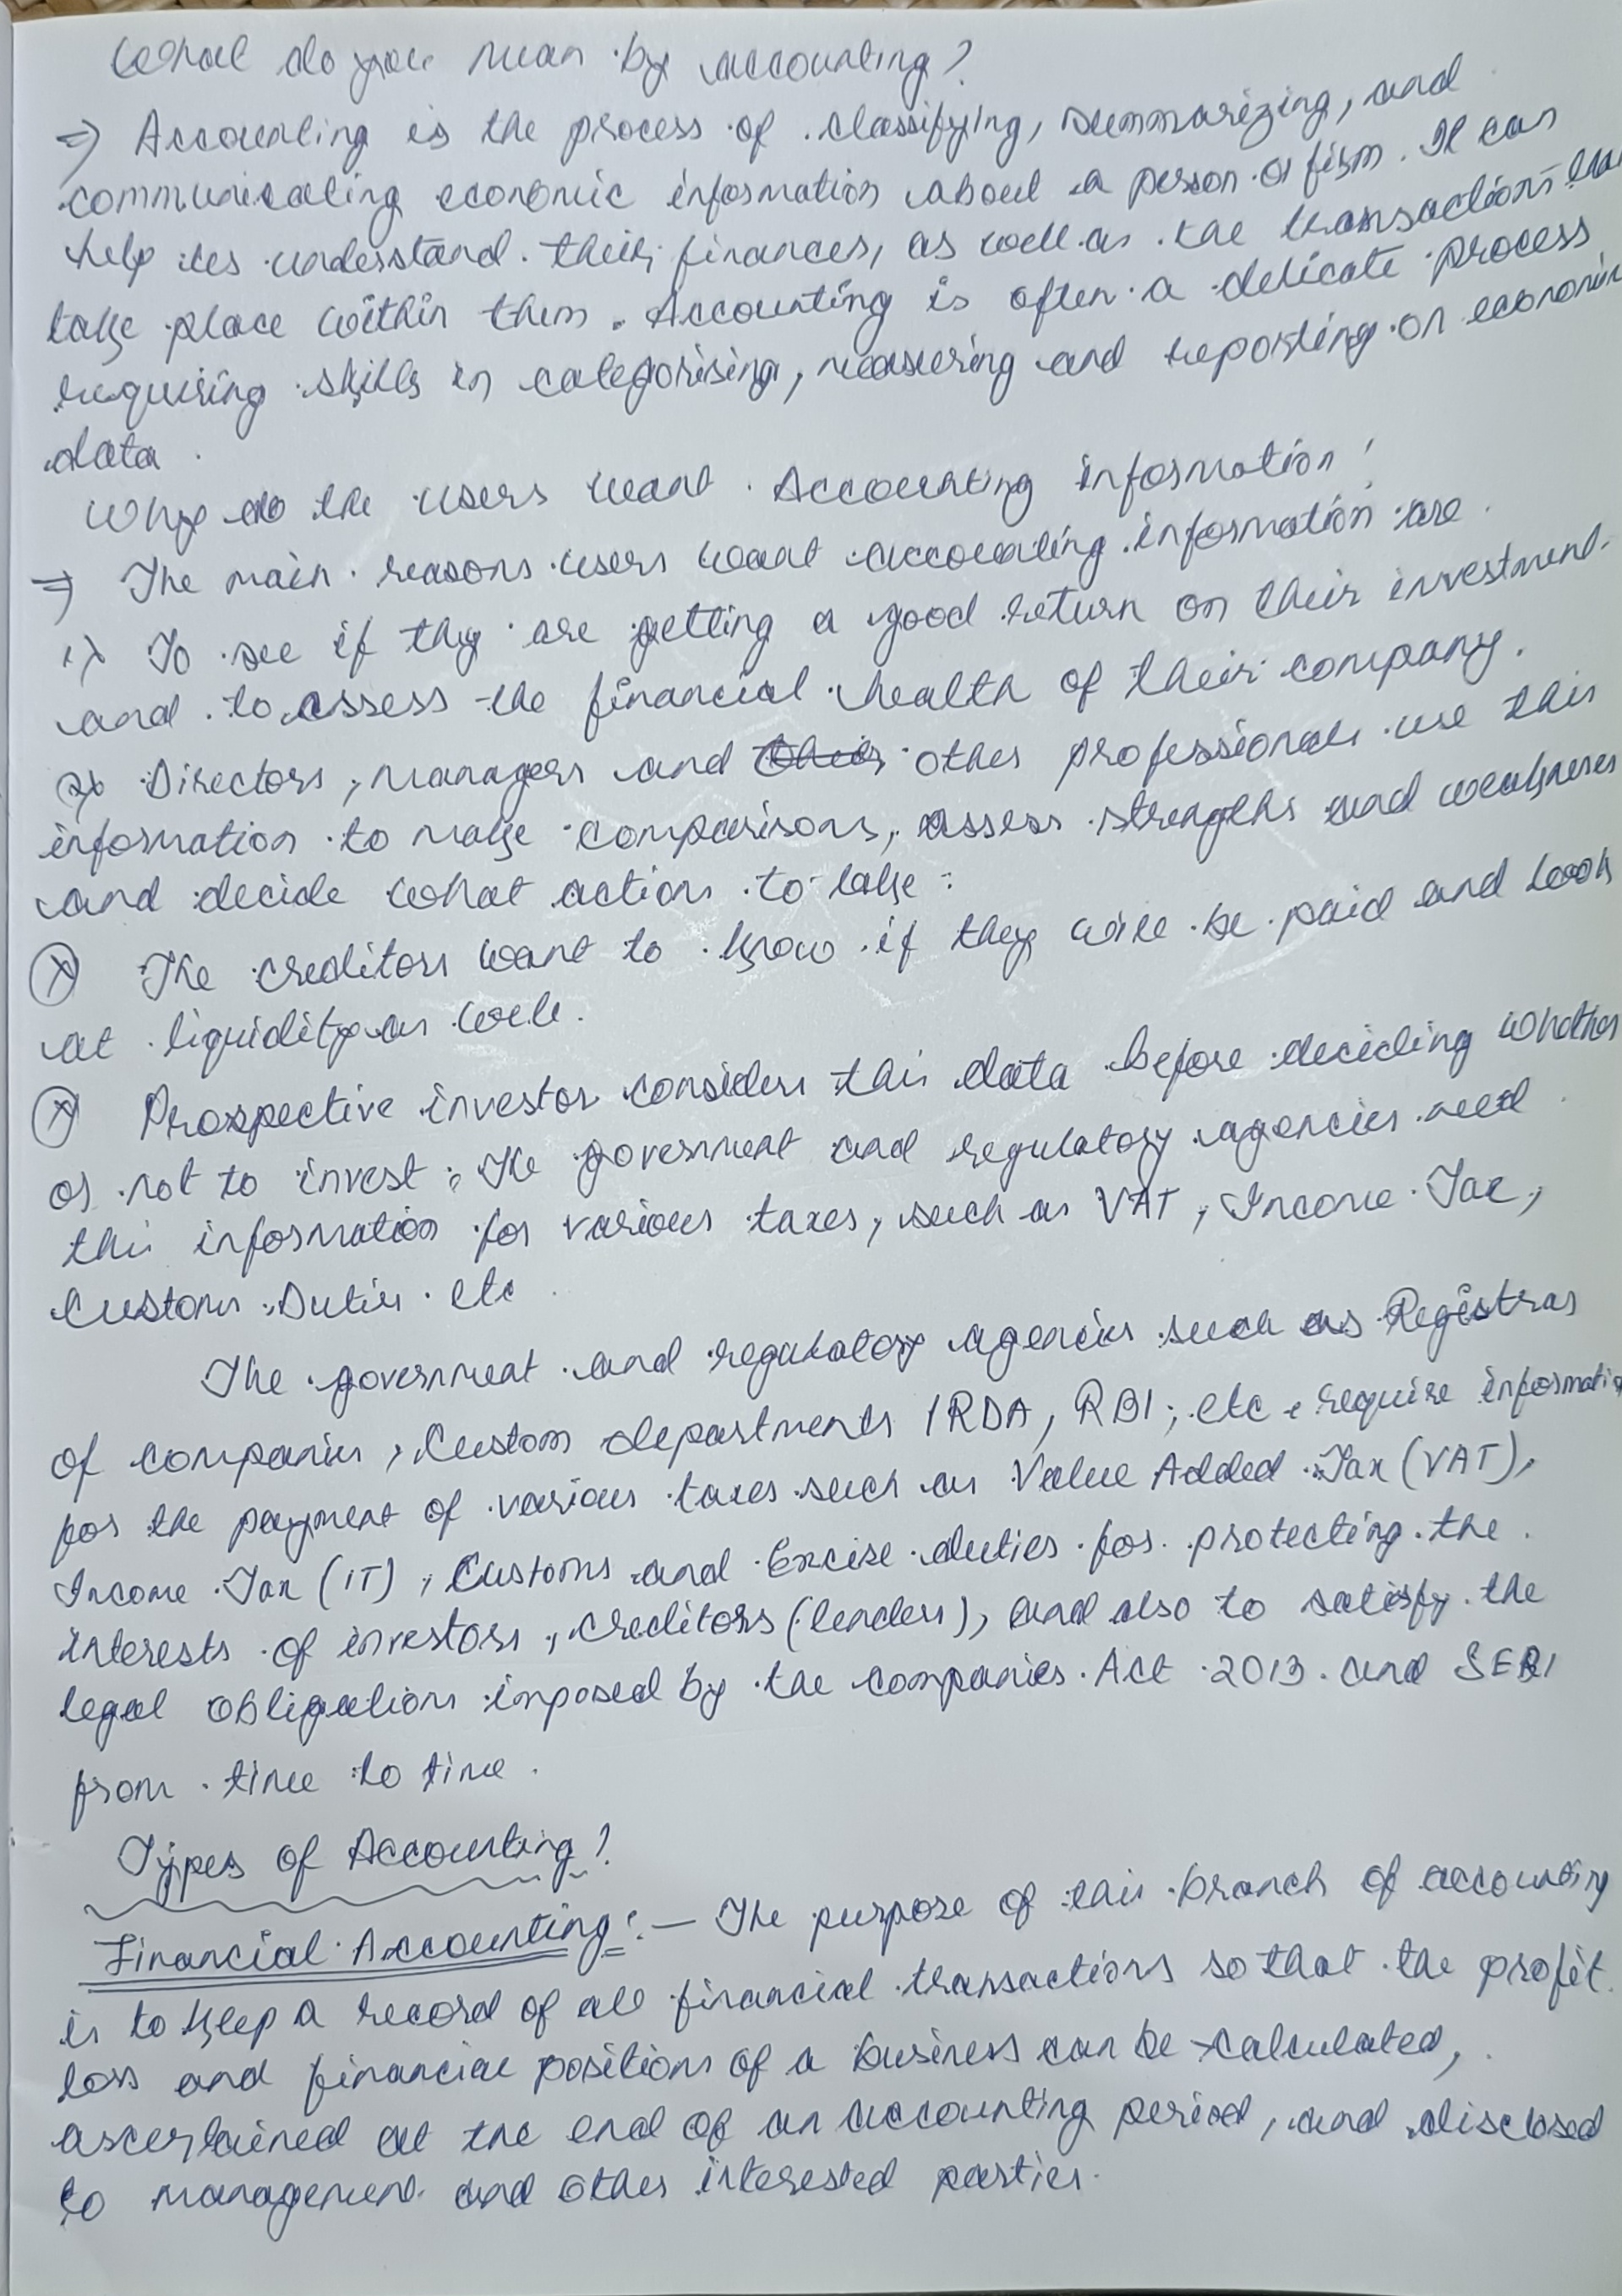 What do you mean by accounting?
=> Accounting is the process of classifying, summarizing, and
communicating economic information about a person or firm. It can
help us understand their finances, as well as the transactions that
take place within them. Accounting is often a delicate process
requiring skills in categorising, measuring and reporting on economic
data.
Why do the users want Accounting information?
=> The main reasons users want accounting information are
1) To see if they are getting a good return on their investment
and to assess the financial health of their company.
2) Directors, managers and other professionals use this
information to make comparisons, assess strengths and weaknesses
and decide what action to take:
The creditors want to know if they will be paid and look
at liquidity as well.
Prospective investor considers this data before deciding whether
or not to invest. The government and regulatory agencies need
this information for various taxes, such as VAT, Income Tax,
Customs Duties etc
The government and regulatory agencies such as Registrar
of companies, Custom departments IRDA, RBI, etc require information
for the payment of various taxes such as Value Added Tax (VAT),
Income Tax (IT), Customs and Excise duties for protecting the
interests of investors, creditors (lenders), and also to satisfy the
legal obligations imposed by the companies Act 2013 and SEBI
from time to time.
Types of Accounting?
Financial Accounting:— The purpose of this branch of accounting
is to keep a record of all financial transactions so that the profit
loss and financial positions of a business can be calculated,
ascertained at the end of an accounting period, and disclosed
to management and other interested parties.